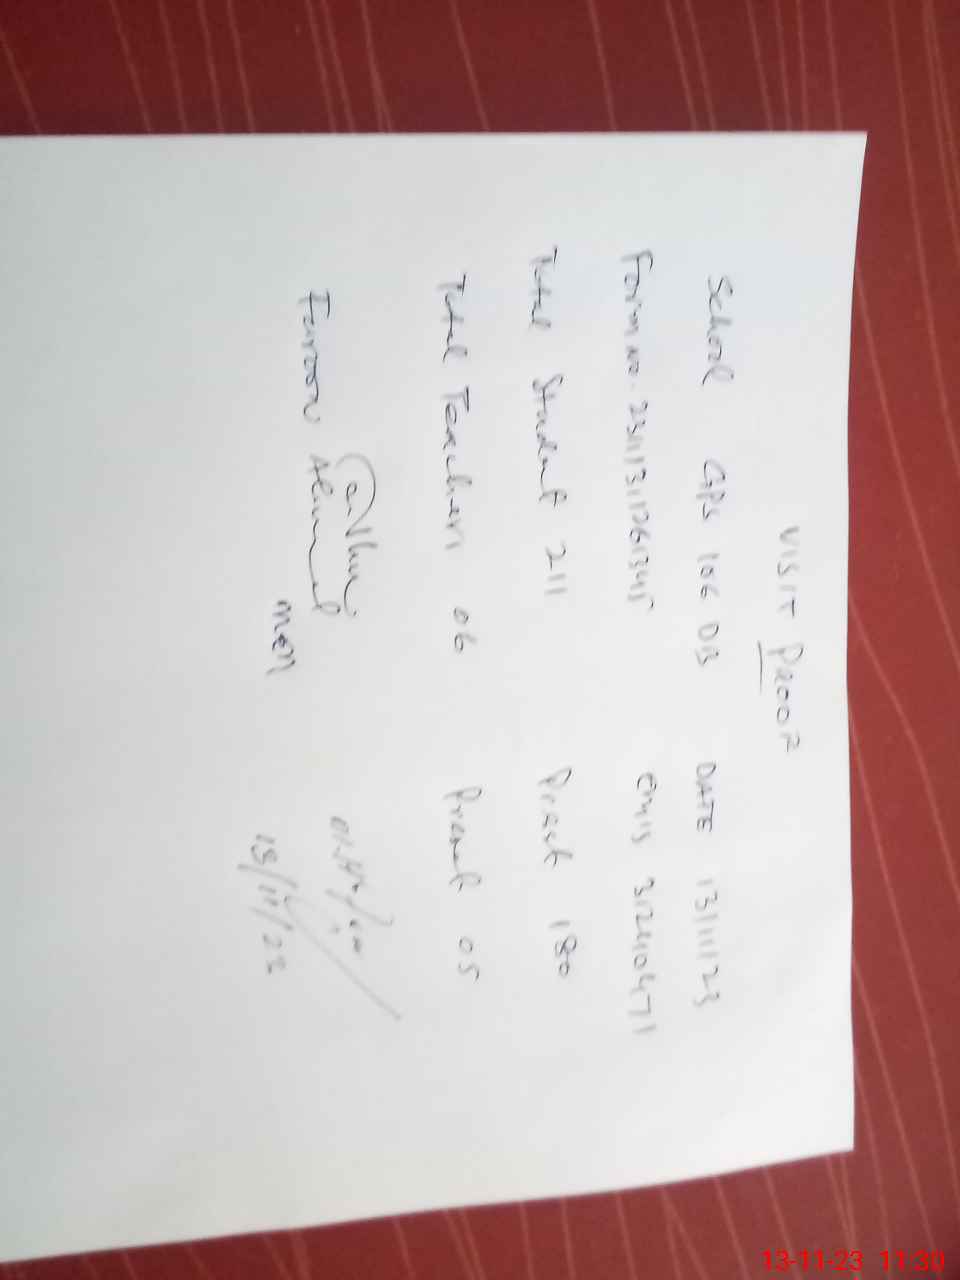 VISIT PROOF
School GPS 106 DB DATE 13/11/23
Form no. 
EMIS 31240471
Total Student 211 Preset 180
Total Teachers 06 Present 05
Ahmed
MEN
13/11/23
13-11-23 11:30